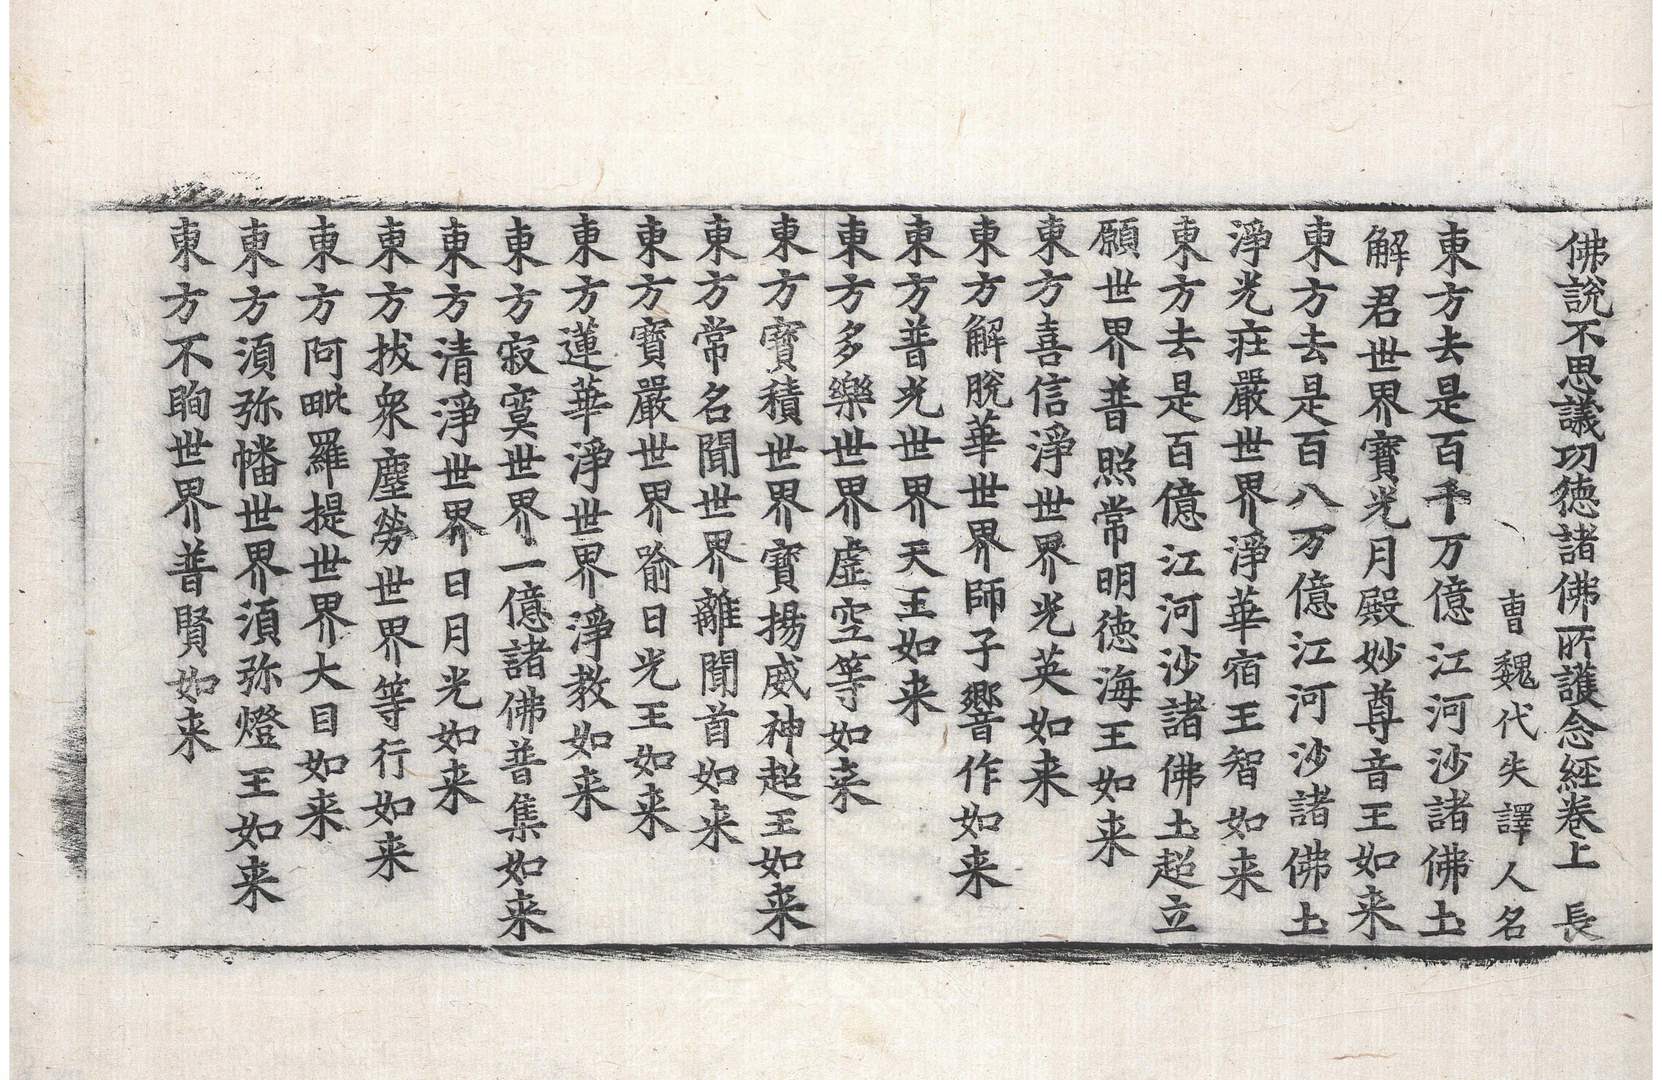 佛說不思議功德諸佛所護念經卷上 長
曺魏代失譯人名
東方去是百千万億江河沙諸佛土
解君世界寶光月殿妙尊音王如来
東方去是百八万億江河沙諸佛土
淨光莊嚴世界淨華宿王智如来
東方去是百億江河沙諸佛土超立
願世界普照常明德海王如来
東方喜信淨世界光英如来
東方解脫華世界師子響作如来
東方普光世界天王如来
東方多樂世界虛空等如来
東方寶積世界寶揚威神超王如来
東方常名聞世界離聞首如来
東方寶嚴世界喻日光王如来
東方蓮華淨世界淨教如来
東方寂寞世界一億諸佛普集如来
東方清淨世界日月光如来
東方拔衆塵勞世界等行如来
東方阿毗羅提世界大目如来
東方湏弥幡世界湏弥燈王如来
東方不眴世界普賢如来